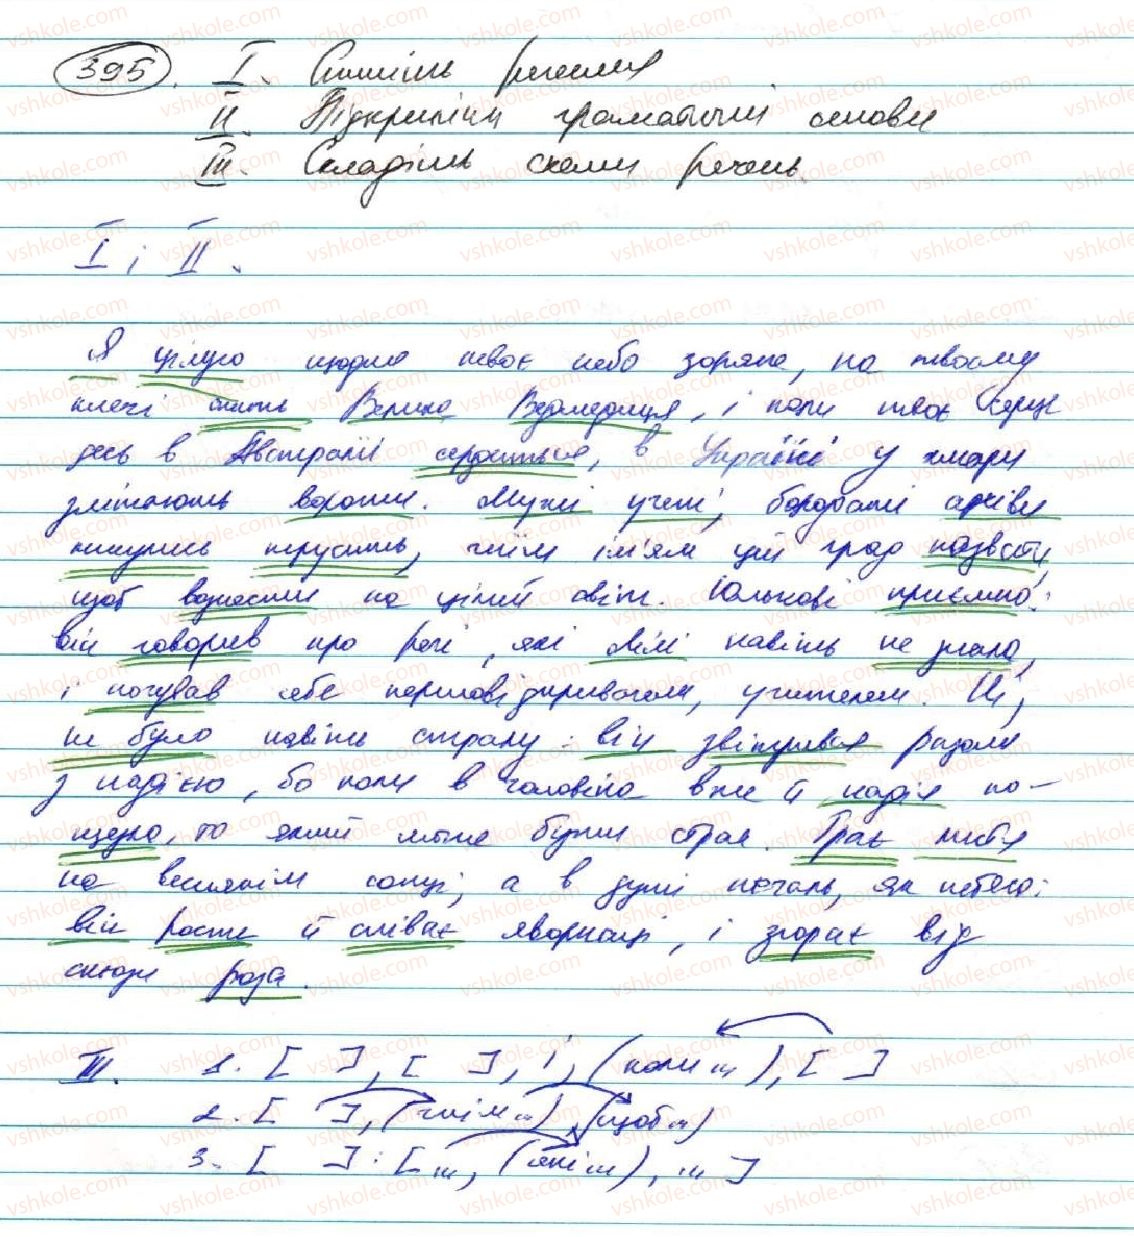 395. I. Спишіть речення
II. Підкресліть граматичні основи
III. Складіть схеми речень.
I, II.
Я цілую щодня твоє небо зоряне, на твоєму
плечі спить Велика Ведмедиця, і коли твоє серце
десь в Австралії сердиться, в Україні у хмари
злітають ворони. Мужі учені, бородаті архіви
кинулись трусить, чиїм ім'ям цей град назвати,
щоб возносити на цілий світ. Юлькові приємно:
він говорив про речі, які Лілі навіть не знала,
і почував себе першовідкривачем, учителем. Ні,
не було навіть страху: він звітрився разом
з надією, бо коли в чоловіка вже й надія по-
щезла, то який може бути страх. Грає листя
на веснянім сонці, а в душі печаль, як небеса:
він росте й співає яворонці, і згорає від
сльози роза.
III. 1. [ ], [ ], і, (коли...), [ ]
2. [ ], (чиїм...), (щоб...)
3. [ ] : [..., (які...), ...]